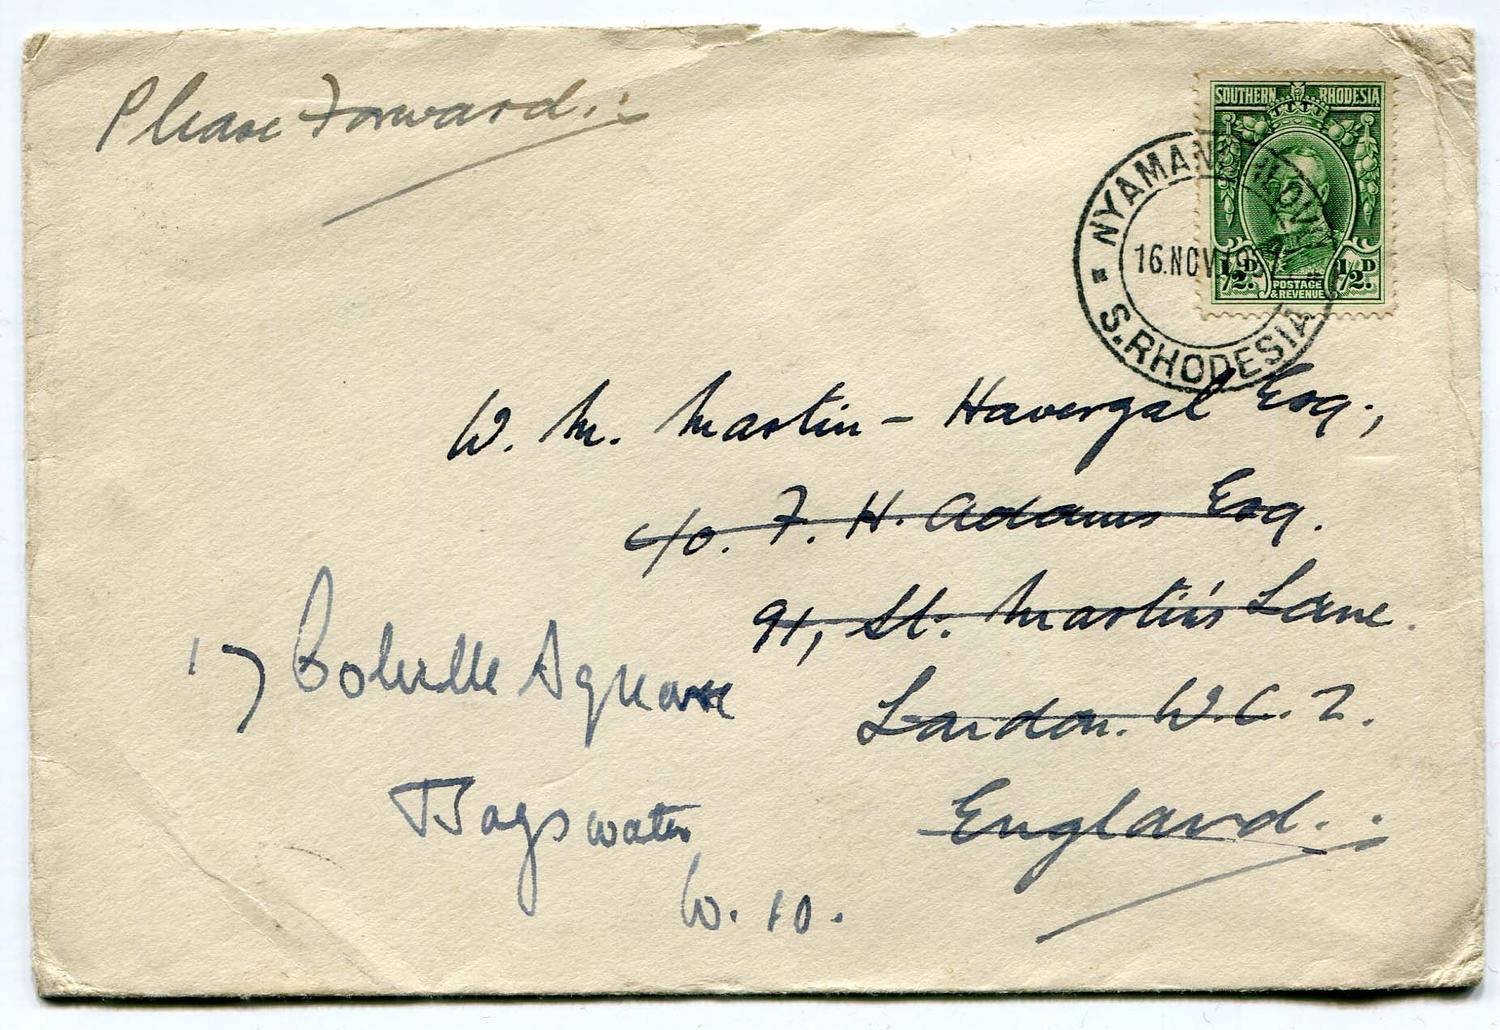 Please Forward.
SOUTHERN RHODESIA
½D
½D
POSTAGE
& REVENUE
16.NOV
S.RHODESIA
W. M. Martin-Havergal Esq.,
c/o. F. H. Adams Esq.
91, St. Martin's Lane.
London. W.C.2.
England.
17 Square
Bayswater
W. 10.